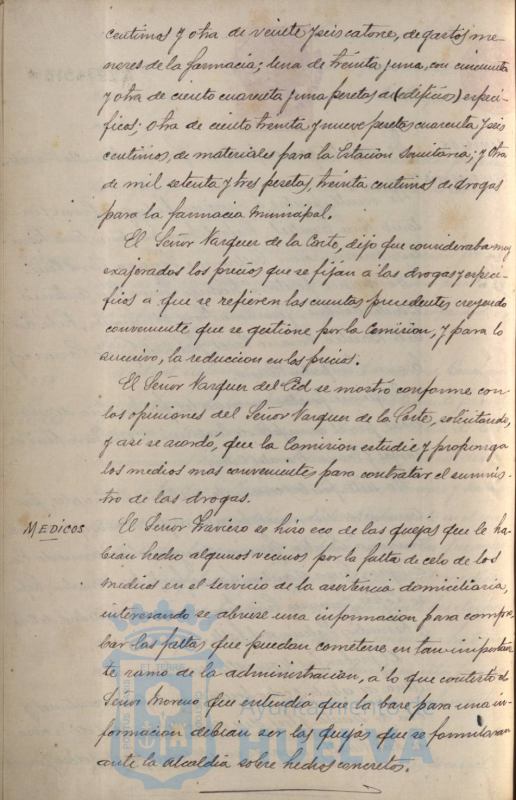 centimos y otra de veinte y seis catorce, de gastos me-
nores de la farmacia; una de treinta y una, con cincuenta
y otra de ciento cuarenta y una pesetas de (edificios) especi-
ficos; otra de ciento treinta y nueve pesetas cuarenta y seis
centimos, de materiales para la Estacion Sanitaria; y otra
de mil setenta y tres pesetas, treinta centimos de drogas
para la farmacia municipal.
El Señor Vazquez de la Corte, dijo que consideraba muy
exajerados los precios que se fijan á las drogas y especi-
ficos á que se refieren las cuentas precedentes, creyendo
conveniente que se gestione por la Comision, y para lo
sucesivo, la reduccion en los precios.
El Señor Vazquez del Cid se mostró conforme con
las opiniones del Señor Vazquez de la Corte, solicitando,
y asi se acordó, que la Comision estudie y proponga
los medios mas convenientes para contratar el suminis-
tro de las drogas.
MÉDICOS El Señor Traviero se hizo eco de las quejas que le ha-
bian hecho algunos vecinos por la falta de celo de los
medicos en el servicio de la asistencia domiciliaria,
interesando se abriese una informacion para compro-
bar las faltas que puedan cometerse en tan importan-
te ramo de la administracion, á lo que contestó el
Señor Moreno que entendia que la base para una in-
formacion debian ser las quejas que se formularan
ante la Alcaldia sobre hechos concretos.
Ayuntamiento de
HUELVA